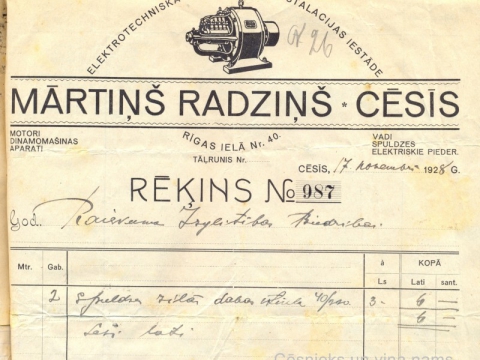 ELEKTROTECHNISKA STALACIJAS IESTĀDE
N 26
MĀRTIŅŠ RADZIŅŠ * CĒSĪS
MOTORI
DINAMOMAŠINAS
APARATI
RĪGAS IELĀ Nr. 40.
TĀLRUNIS Nr.
VADI
SPULDZES
ELEKTRISKIE PIEDER.
CĒSĪS, 17 novembrī 1928 G.
RĒĶINS No 987
God. Izglītības Biedrībai.
Mtr. Gab. à KOPĀ
Ls Lati sant.
2 spuldzes 3- 6 —
6 —
Seši lati
Cēsnieks un viņa nams